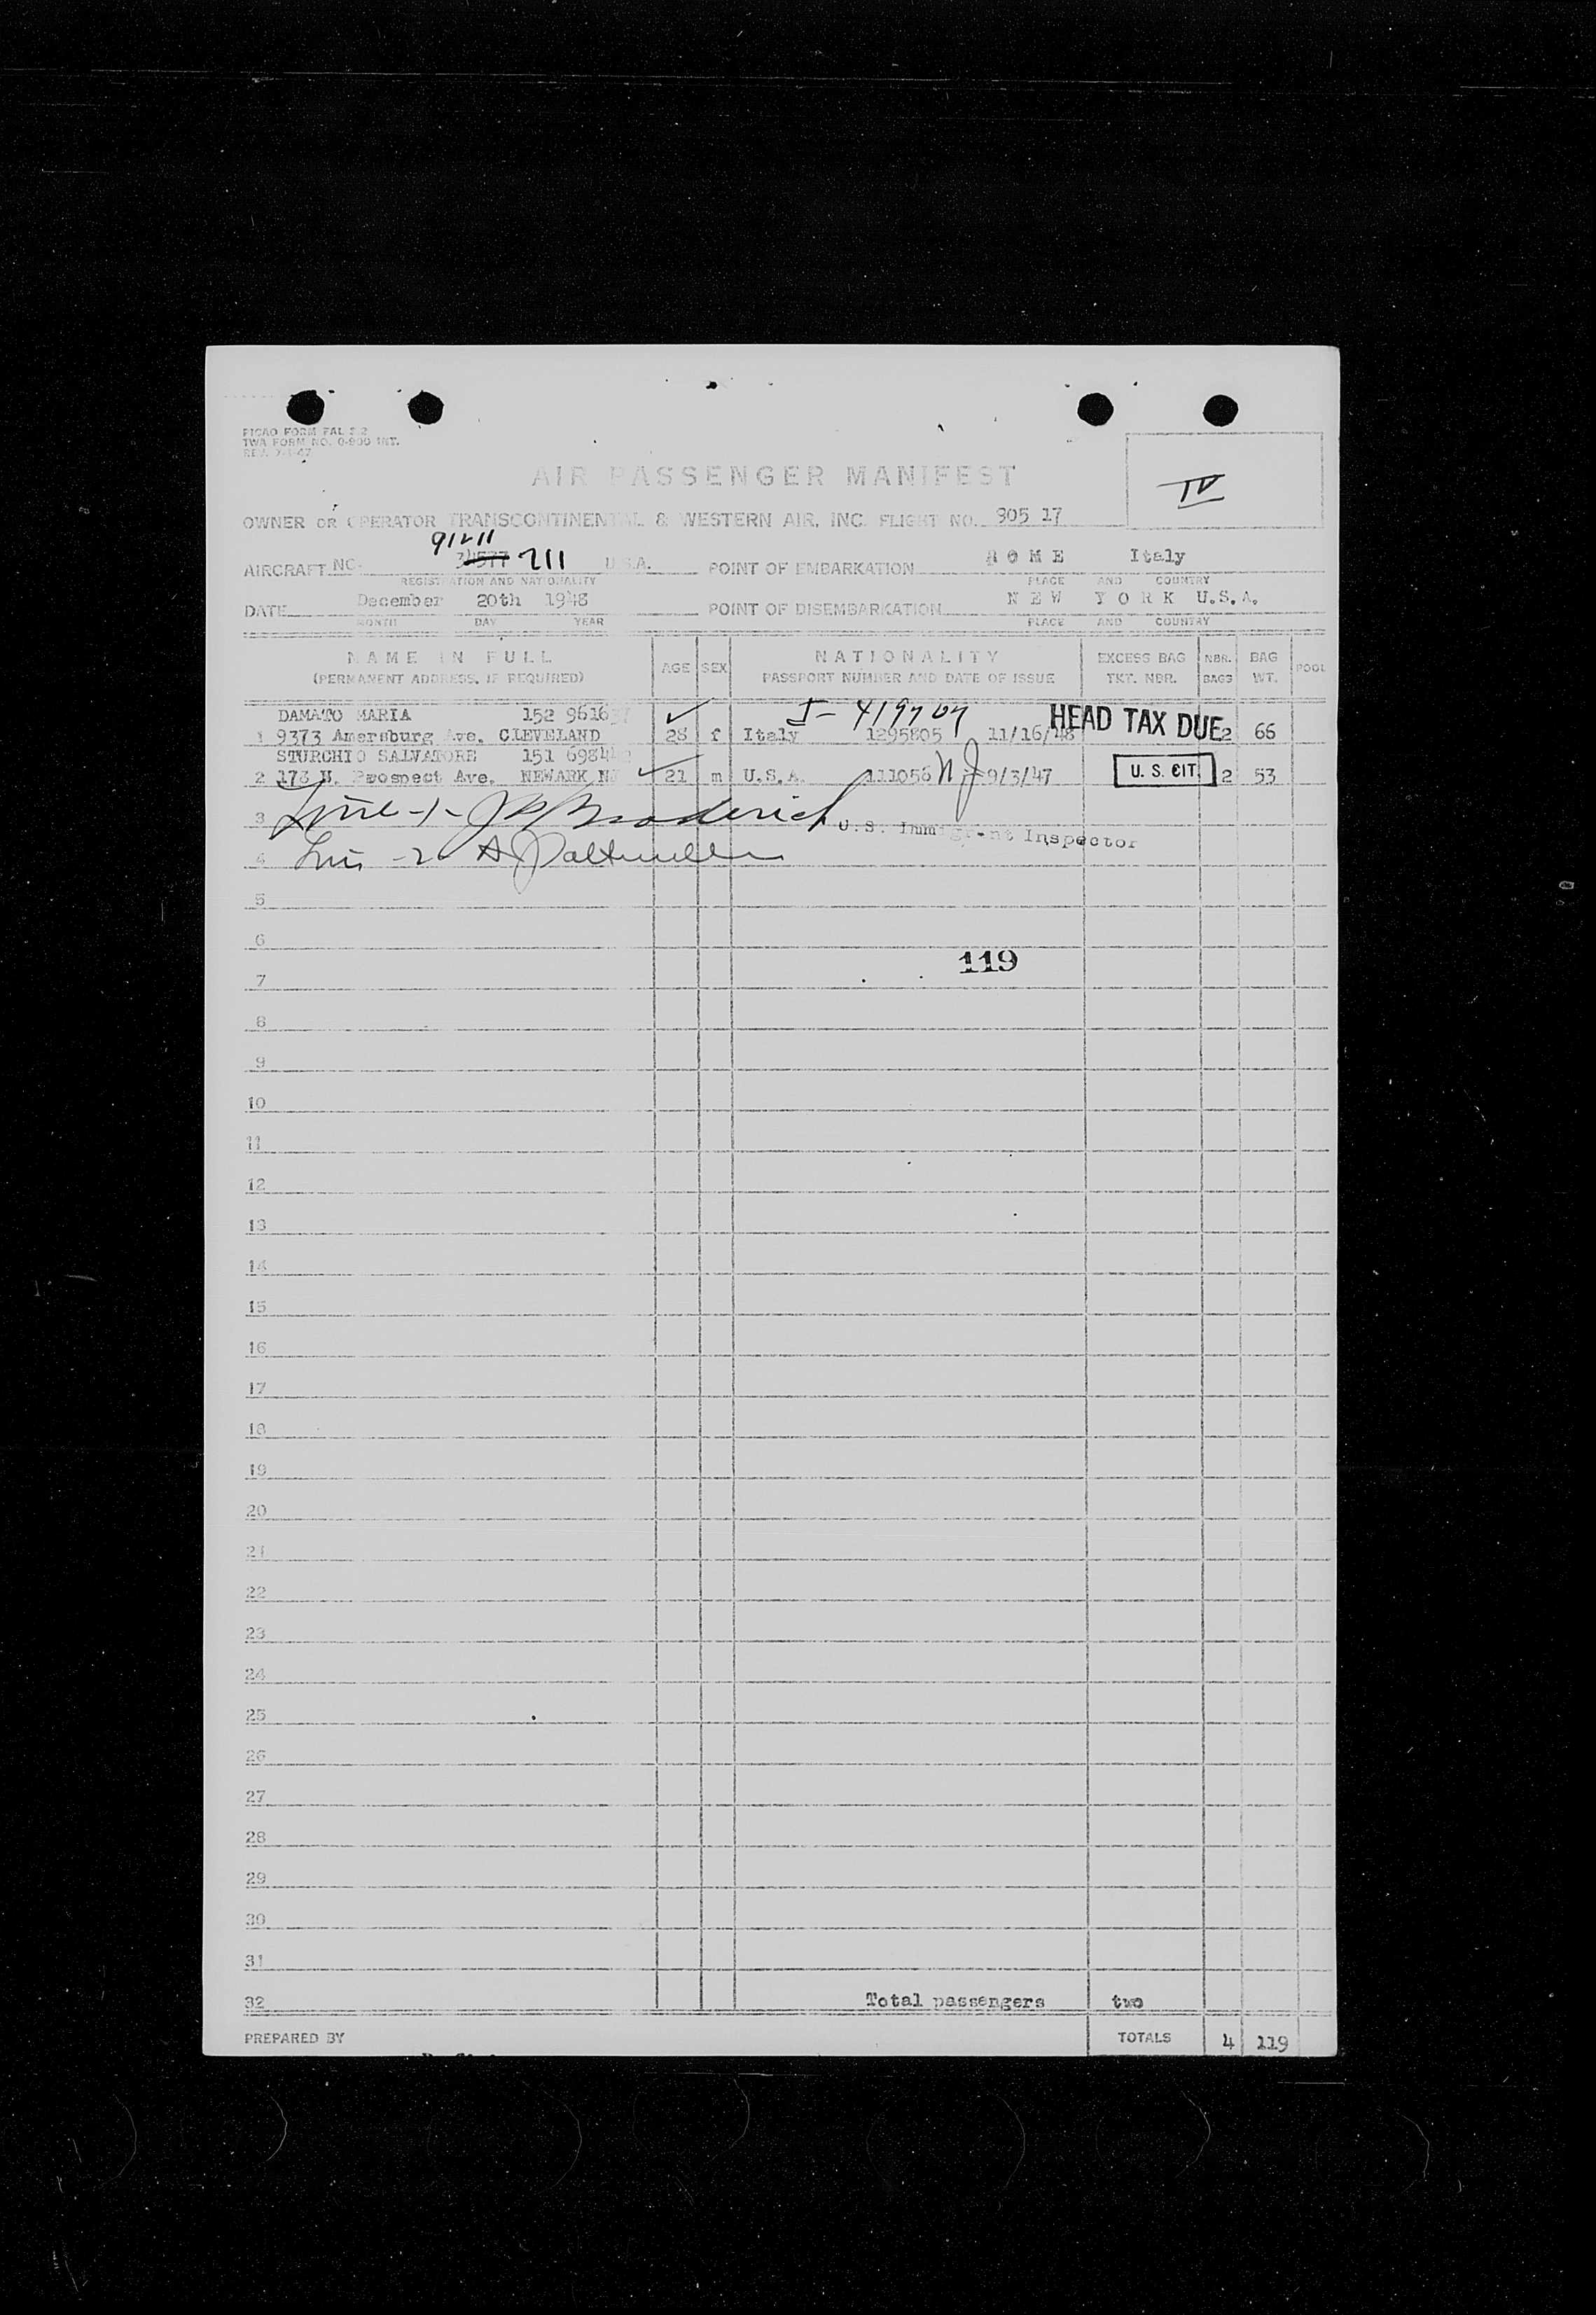 PICAO FORM FAL 2.2
TWA FORM NO. 0-900 INT.
REV. 7-1-47
AIR PASSENGER MANIFEST
IV
OWNER OR OPERATOR TRANSCONTINENTAL & WESTERN AIR, INC. FLIGHT NO. 905 17
91211
AIRCRAFT NO. 34577 211 U.S.A. POINT OF EMBARKATION ROME Italy
REGISTRATION AND NATIONALITY PLACE AND COUNTRY
DATE December 20th 1948 POINT OF DISEMBARKATION NEW YORK U.S.A.
MONTH DAY YEAR PLACE AND COUNTRY
NAME IN FULL AGE SEX NATIONALITY EXCESS BAG NBR. BAG POOL
(PERMANENT ADDRESS, IF REQUIRED) PASSPORT NUMBER AND DATE OF ISSUE TKT. NBR. BAGS WT.
DAMATO MARIA 152 961637 I- 419707 HEAD TAX DUE
1 9373 Amersburg Ave. CLEVELAND 28 f Italy 1295805 11/16/48 2 66
STURCHIO SALVATORE 151 6984
2 173 N. Prospect Ave. NEWARK NJ 21 m U.S.A. 111056 NJ 9/3/47 U. S. CIT. 2 53
3 Line -1- Broderick U.S. Immigrant Inspector
4 Line -2-
5
6
119
7
8
9
10
11
12
13
14
15
16
17
18
19
20
21
22
23
24
25
26
27
28
29
30
31
32 Total passengers two
PREPARED BY TOTALS 4 119